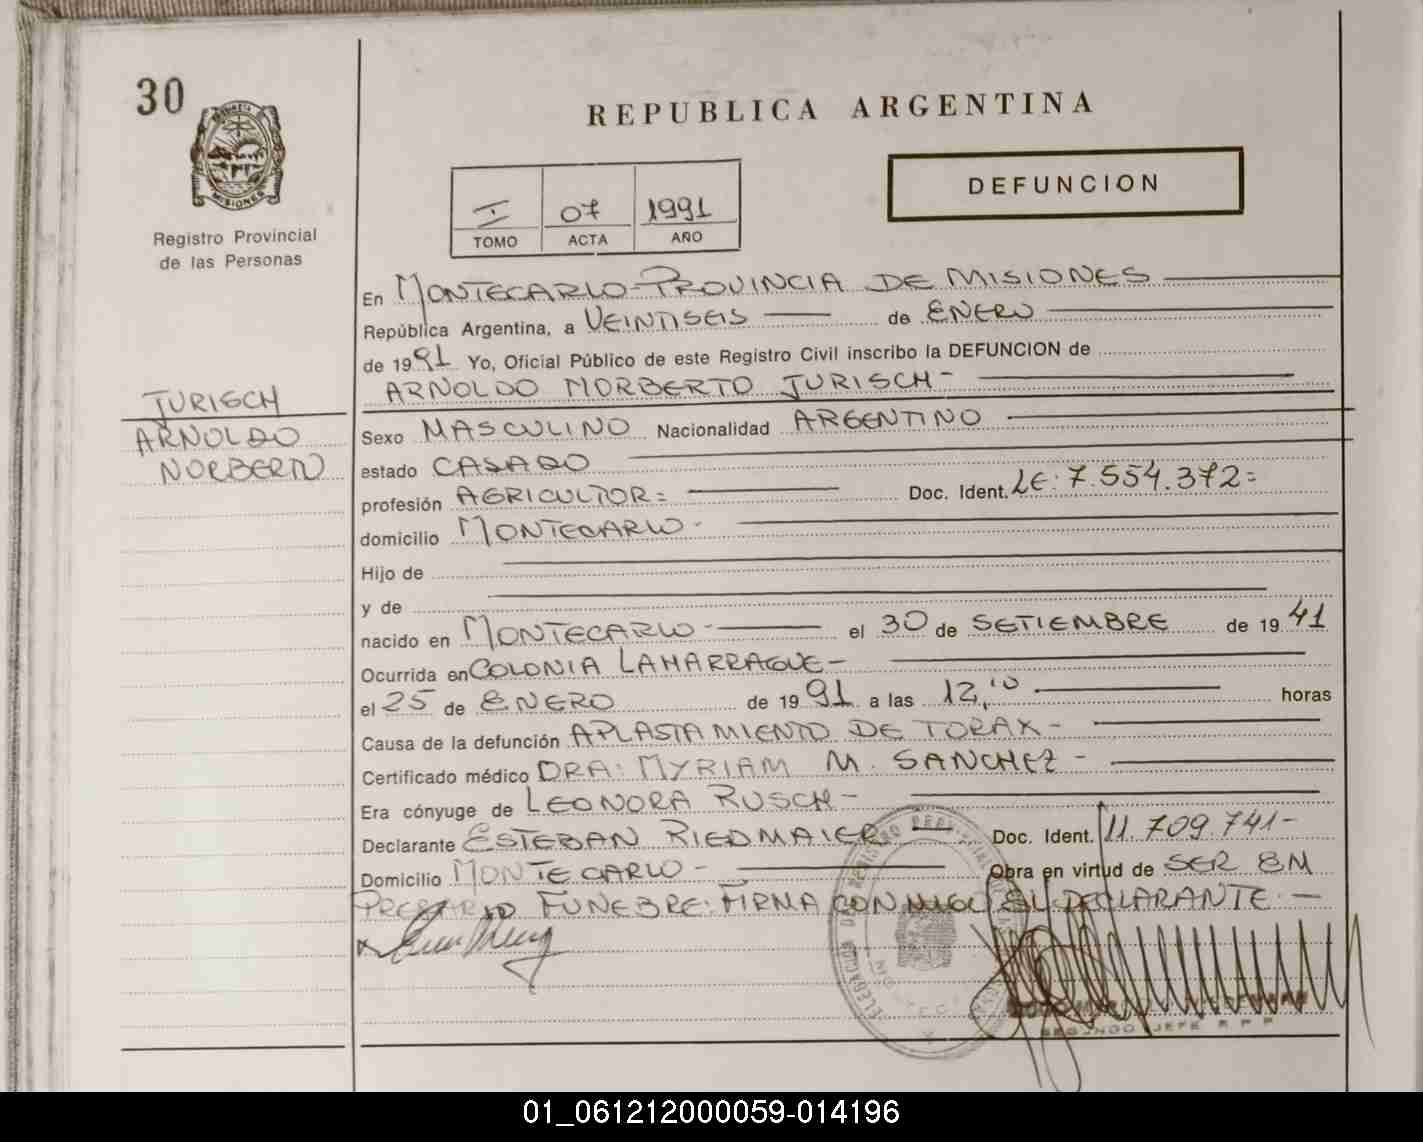 30
MISIONES
Registro Provincial
de las Personas
REPUBLICA ARGENTINA
I 07 1991
TOMO ACTA AÑO
DEFUNCION
En MONTECARLO-PROVINCIA DE MISIONES
República Argentina, a VEINTISEIS de ENERO
de 1991 Yo, Oficial Público de este Registro Civil inscribo la DEFUNCION de
ARNOLDO NORBERTO JURISCH-
JURISCH
ARNOLDO
NORBERTO
Sexo MASCULINO Nacionalidad ARGENTINO
estado CASADO
profesión AGRICULTOR= Doc. Ident. LE: 7.554.372=
domicilio MONTECARLO-
Hijo de
y de
nacido en MONTECARLO- el 30 de SETIEMBRE de 1941
Ocurrida en COLONIA LAHARRAGUE-
el 25 de ENERO de 1991 a las 12,10 horas
Causa de la defunción APLASTAMIENTO DE TORAX-
Certificado médico DRA: MYRIAM M. SANCHEZ-
Era cónyuge de LEONORA RUSCH-
Declarante ESTEBAN RIEDMAIER Doc. Ident. 11.709.741-
Domicilio MONTECARLO- Obra en virtud de SER EM
FUNEBRE: FIRMA CONMIGO EL DECLARANTE.-
SEGUNDO JEFE R.P.P.
01_061212000059-014196